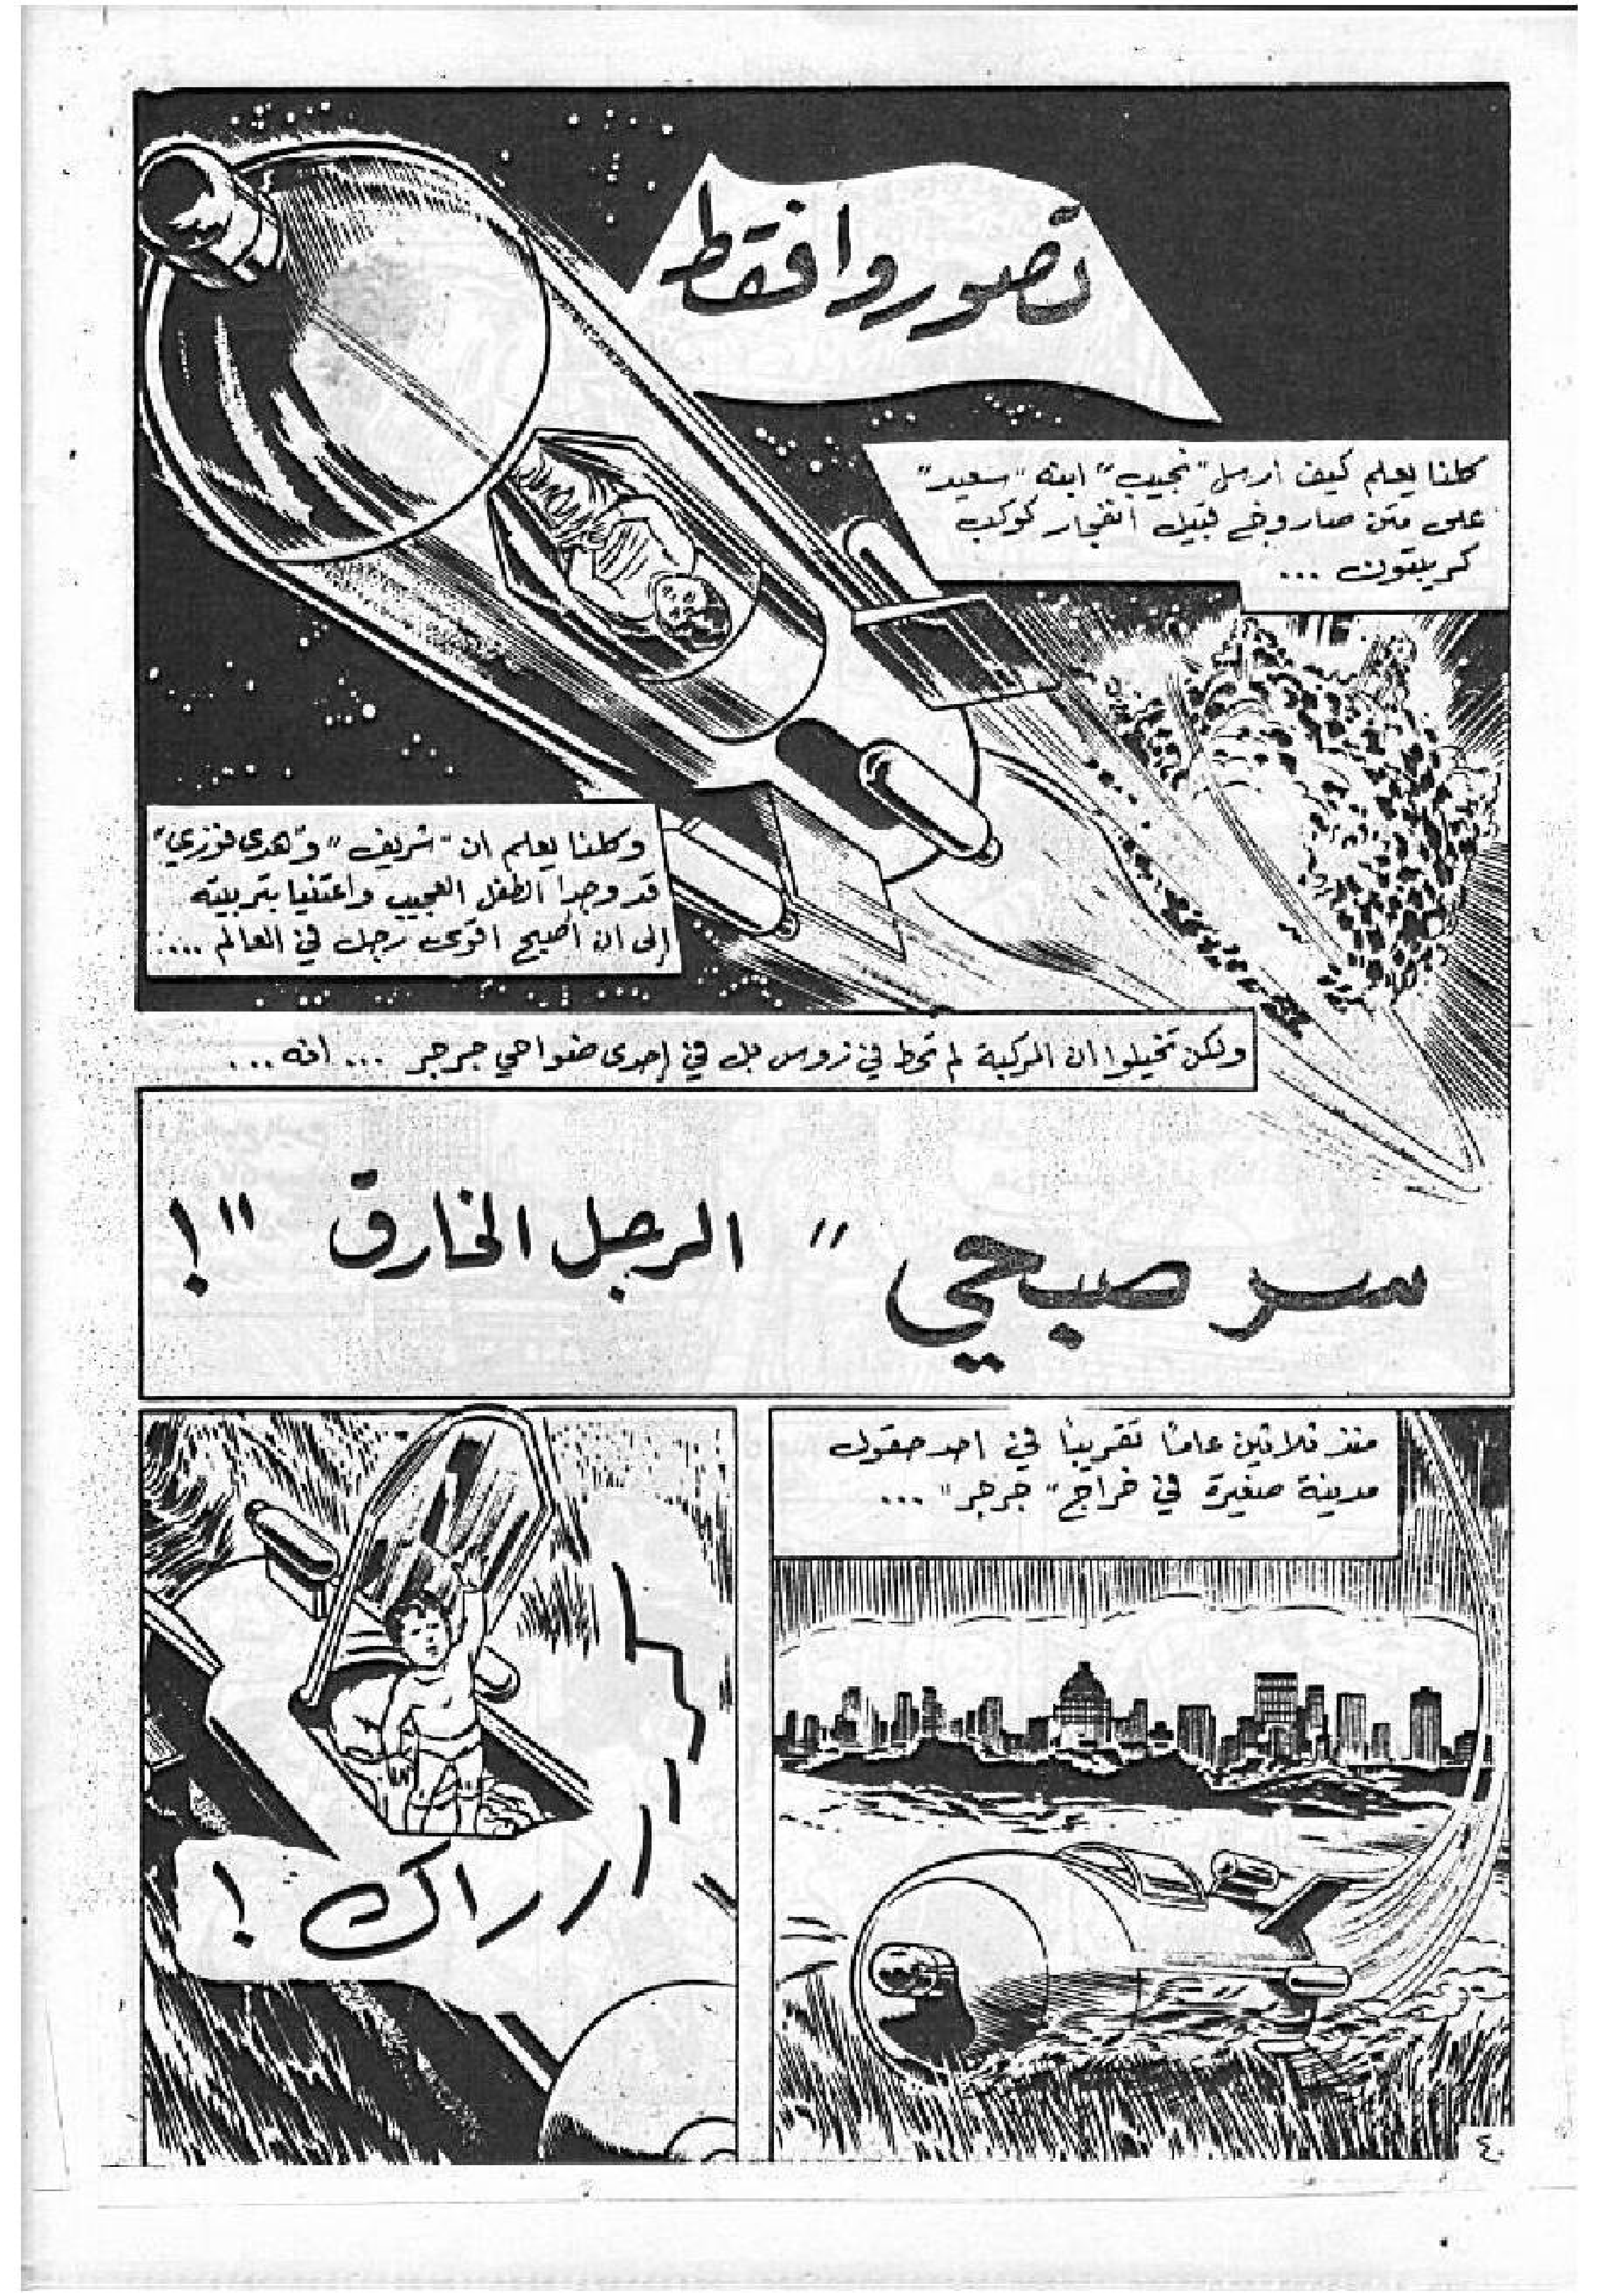 تصوروا فقط
كلنا يعلم كيف أرسل "نجيب" ابنه "سعيد"
على متن صاروخ قبيل انفجار كوكب
كريبتون ...
وكلنا يعلم ان "شريف" و"هدى فوزي"
قد وجدا الطفل العجيب واعتنيا بتربيته
إلى ان أصبح اقوى رجل في العالم ....
ولكن تخيلوا ان المركبة لم تحط في زوس بل في إحدى ضواحي جرجر ... انه ...
سر صبحي " الرجل الخارق "!
منذ ثلاثين عامًا تقريبًا في احد حقول
مدينة صغيرة في خراج "جرجر" ...
ااارراك !
٤٠